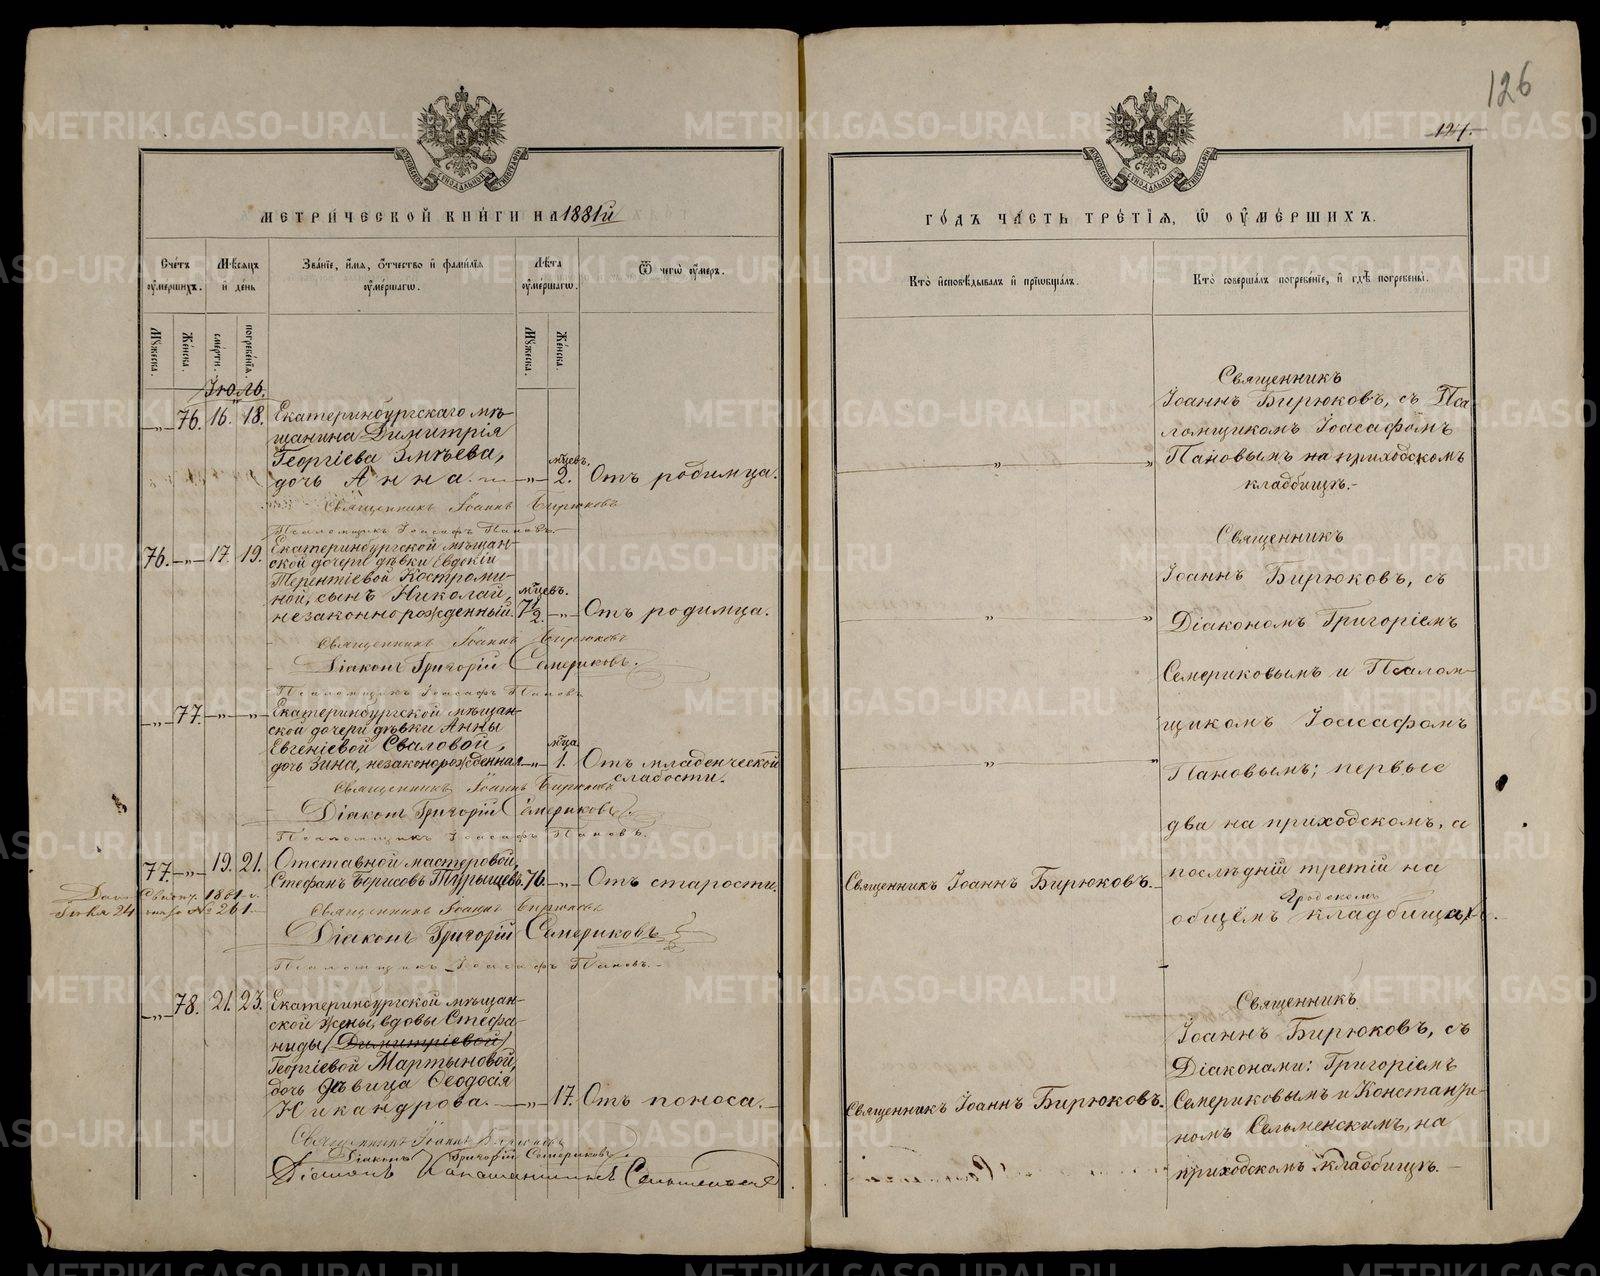 126
124.
МЕТРИЧЕСКОЙ КНИГИ НА 1881й
ГОДЪ ЧАСТЬ ТРЕТІЯ, Ѿ ОУМЕРШИХЪ.
Счетъ оумершихъ.
Мѣсяцъ и день
Званіе, имя, отчество и фамилія оумершагѡ.
Лѣта оумершагѡ.
Ѿ чегѡ оумеръ.
Кто исповѣдывалъ и пріобщалъ.
Кто совершалъ погребеніе, и гдѣ погребены.
Мужеска.
Женска.
смерти.
погребенія.
Мужеска.
Женска.
Іюль.
—„— 76. 16. 18. Екатеринбургскаго мѣ-
щанина Димитрія
Георгіева Змѣева,
дочь Анна. —„— мѣцевъ. 2. Отъ родимца.
Священникъ Іоаннъ Бирюковъ
Псаломщикъ Іоасафъ Пановъ.
Священникъ
Іоаннъ Бирюковъ, съ Пса
ломщикомъ Іоасафомъ
Пановымъ на приходскомъ
кладбищѣ.-
76. —„— 17. 19. Екатеринбургской мѣщан-
ской дочери дѣвки Евдокіи
Терентіевой Костроми-
ной, сынъ Николай,
незаконнорожденный. мѣцевъ. 7 1/2. —„— Отъ родимца.
Священникъ Іоаннъ Бирюковъ
Діаконъ Григорій Семериковъ.
Псаломщикъ Іоасафъ Пановъ
—„— 77. —„— —„— Екатеринбургской мѣщан-
ской дочери дѣвки Анны
Евгеніевой Сваловой,
дочь Зина, незаконорожденная —„— мѣца 1. Отъ младенческой
слабости.
Священникъ Іоаннъ Бирюковъ
Діаконъ Григорій Семериковъ.
Псаломщикъ Іоасафъ Пановъ.
77. —„— 19. 21. Отставной мастеровой,
Стефанъ Борисовъ Турышевъ. 76. —„— Отъ старости.
Священникъ Іоаннъ Бирюковъ.
1881 г.
№ 261.
Священникъ Іоаннъ Бирюковъ
Діаконъ Григорій Семериковъ
Псаломщикъ Іоасафъ Пановъ.-
Священникъ
Іоаннъ Бирюковъ, съ
Діакономъ Григоріемъ
Семериковымъ и Псалом-
щикомъ Іоасафомъ
Пановымъ; первые
два на приходскомъ, а
послѣдній третій на
Градскомъ
общемъ кладбищахъ.
—„— 78. 21. 23. Екатеринбургской мѣщан-
ской жены, вдовы Стефа-
ниды (Димитріевой)
Георгіевой Мартыновой,
дочь дѣвица Ѳеодосія
Никандрова. —„— 17. Отъ поноса.
Священникъ Іоаннъ Бирюковъ.
Священникъ Іоаннъ Бирюковъ
Діаконъ Григорій Семериковъ.
Діаконъ Константинъ Сельменскій
Священникъ
Іоаннъ Бирюковъ, съ
Діаконами: Григоріемъ
Семериковымъ и Константи-
номъ Сельменскимъ, на
приходскомъ кладбищѣ.